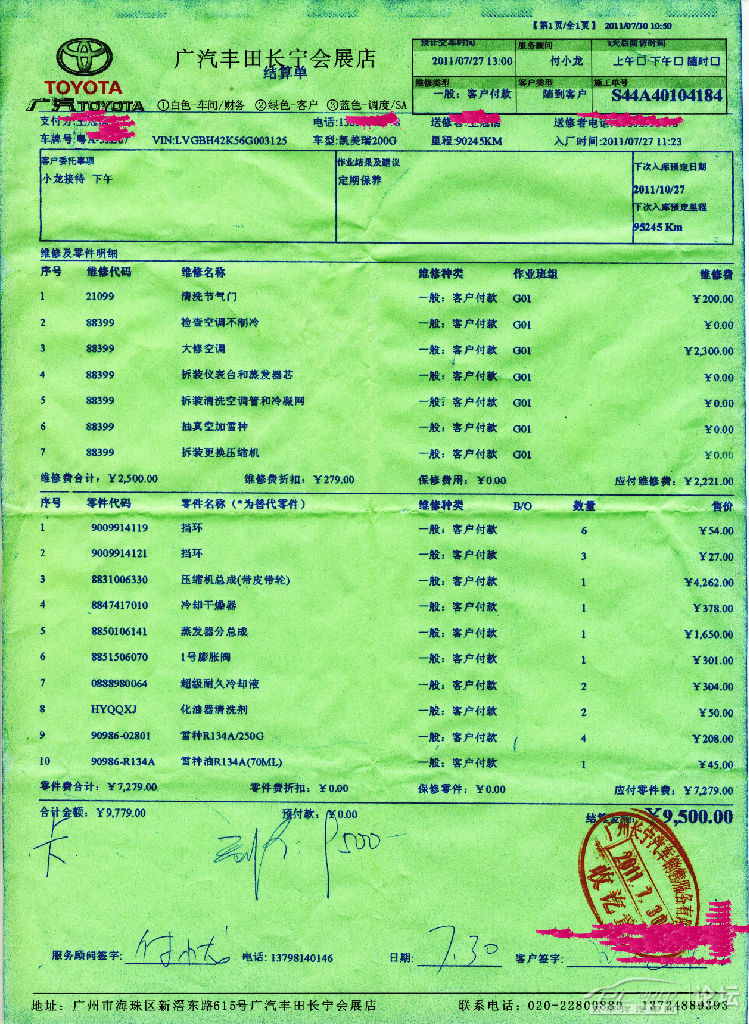 【第1页/全1页】 2011/07/30 10:50
广汽丰田长宁会展店
结算单
TOYOTA
广汽TOYOTA ①白色-车间/财务 ②绿色-客户 ③蓝色-调度/SA
预计交车时间 服务顾问
2011/07/27 13:00 付小龙 上午口 下午口 随时口
维修类型 客户类型 施工单号
一般：客户付款 随到客户 S44A40104184
电话:1 送修者: 送修者电话
车牌号:粤A VIN:LVGBH42K56G003125 车型:凯美瑞200G 里程:90245KM 入厂时间:2011/07/27 11:23
客户委托事项 作业结果及建议 下次入库预定日期
小龙接待 下午 定期保养 2011/10/27
下次入库预定里程
95245 Km
维修及零件明细
序号 维修代码 维修名称 维修种类 作业班组 维修费
1 21099 清洗节气门 一般：客户付款 G01 ￥200.00
2 88399 检查空调不制冷 一般：客户付款 G01 ￥0.00
3 88399 大修空调 一般：客户付款 G01 ￥2,300.00
4 88399 拆装仪表台和蒸发器芯 一般：客户付款 G01 ￥0.00
5 88399 拆装清洗空调管和冷凝网 一般：客户付款 G01 ￥0.00
6 88399 抽真空加雪种 一般：客户付款 G01 ￥0.00
7 88399 拆装更换压缩机 一般：客户付款 G01 ￥0.00
维修费合计：￥2,500.00 维修费折扣：￥279.00 保修费用：￥0.00 应付维修费：￥2,221.00
序号 零件代码 零件名称（*为替代零件） 维修种类 B/O 数量 售价
1 9009914119 挡环 一般：客户付款 6 ￥54.00
2 9009914121 挡环 一般：客户付款 3 ￥27.00
3 8831006330 压缩机总成(带皮带轮) 一般：客户付款 1 ￥4,262.00
4 8847417010 冷却干燥器 一般：客户付款 1 ￥378.00
5 8850106141 蒸发器分总成 一般：客户付款 1 ￥1,650.00
6 8851506070 1号膨胀阀 一般：客户付款 1 ￥301.00
7 0888980064 超级耐久冷却液 一般：客户付款 2 ￥304.00
8 HYQQXJ 化油器清洗剂 一般：客户付款 2 ￥50.00
9 90986-02801 雪种R134A/250G 一般：客户付款 4 ￥208.00
10 90986-R134A 雪种油R134A(70ML) 一般：客户付款 1 ￥45.00
零件费合计：￥7,279.00 零件费折扣：￥0.00 保修零件：￥0.00 应付零件费：￥7,279.00
合计金额：￥9,779.00 预付款：￥0.00 ￥9,500.00
卡
广州长宁汽车销售服务有限
2011.7.30
服务顾问签字: 付小龙 电话: 13798140146 日期: 7.30 客户签字:
地址：广州市海珠区新滘东路615号广汽丰田长宁会展店 联系电话：020-22800880 13724889393
论坛